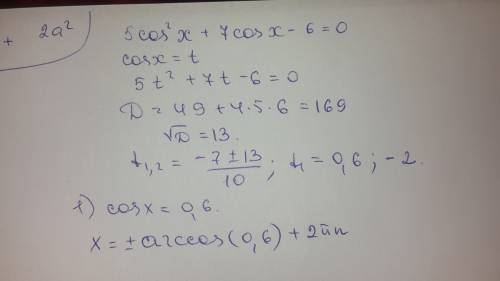 + 2a²
5cos²x + 7cosx - 6 = 0
cosx = t
5t² + 7t - 6 = 0
D = 49 + 4·5·6 = 169
√D = 13.
t₁,₂ = (-7 ± 13)/10 ; t₁ = 0,6 ; - 2.
1) cosx = 0,6.
x = ± arccos(0,6) + 2πn